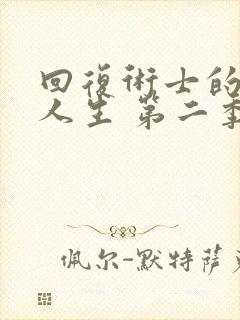 回復術士的
人生 第二季
佩尔-默特萨